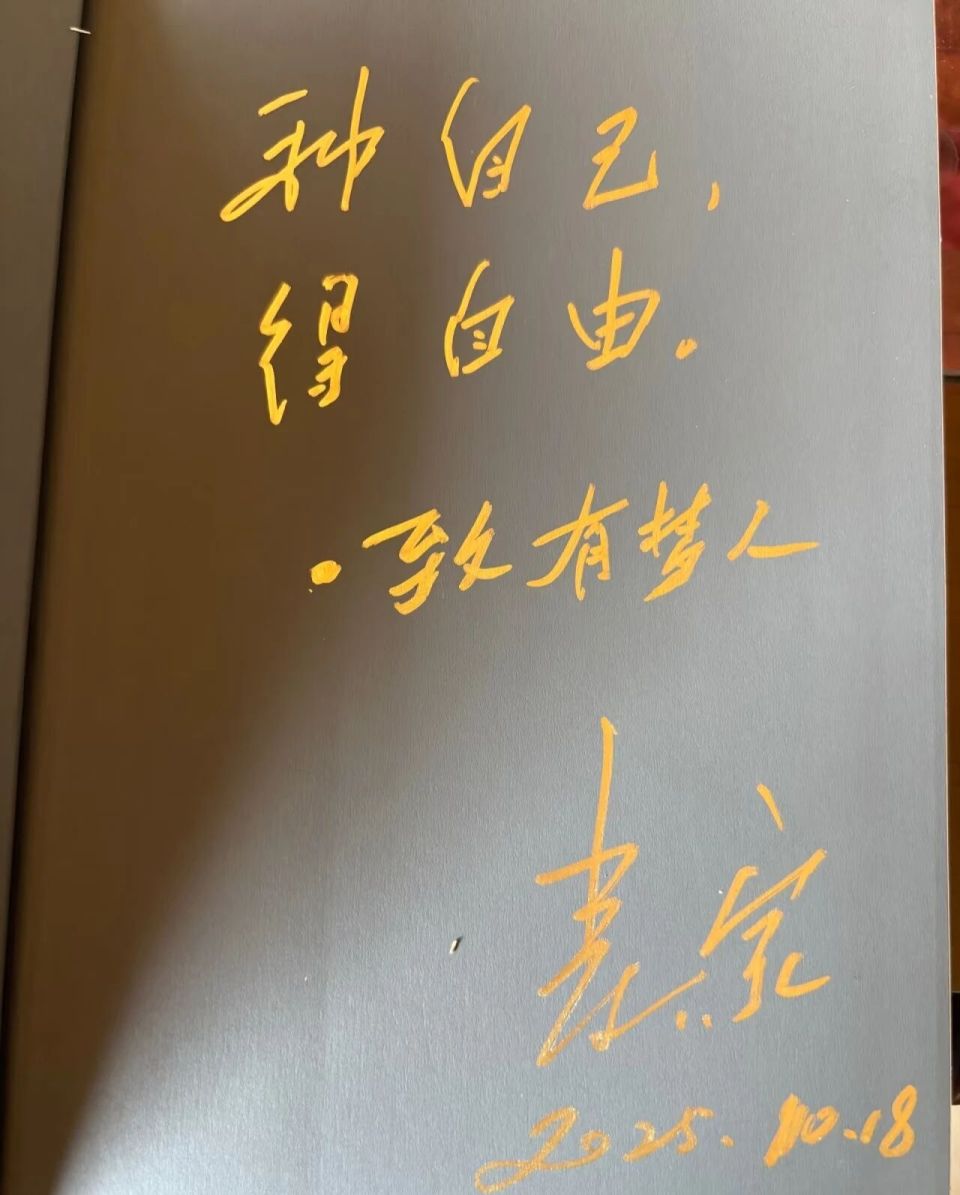 种自己，
得自由.
·致有梦人
2025.10.18